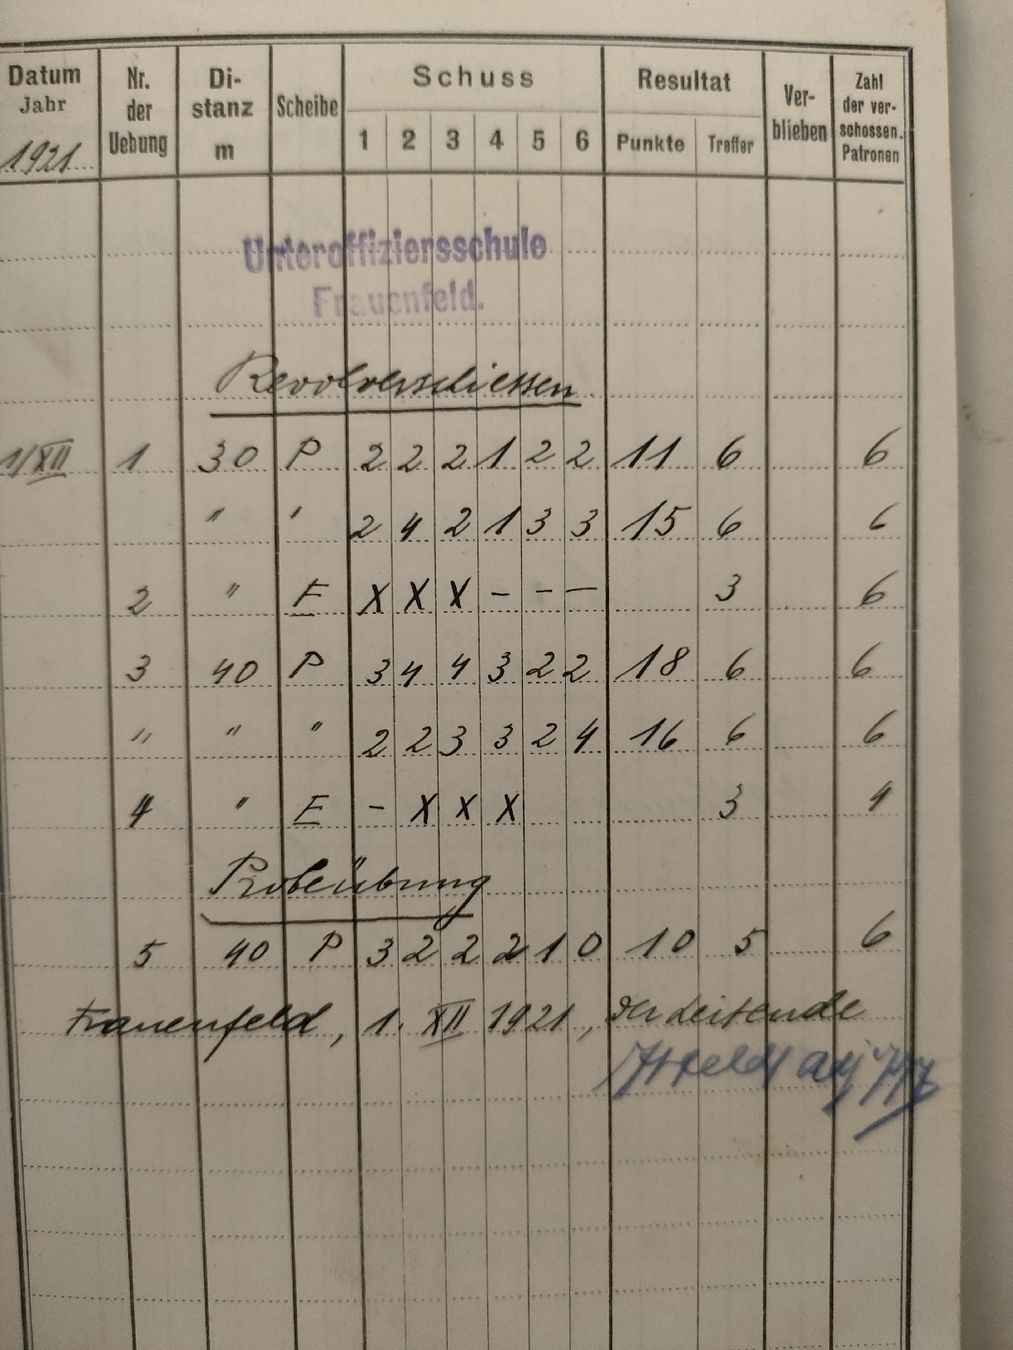 Datum Jahr 1921 Nr. der Uebung Di-stanz m Scheibe Schuss 1 2 3 4 5 6 Resultat Punkte Treffer Ver-blieben Zahl der ver-schossen. Patronen
Unteroffiziersschule
Frauenfeld.
Revolverschiessen
1/XII 1 30 P 2 2 2 1 2 2 11 6 6
" ' 2 4 2 1 3 3 15 6 6
2 " E X X X - - - 3 6
3 40 P 3 4 4 3 2 2 18 6 6
" " " 2 2 3 3 2 4 16 6 6
4 " E - X X X 3 4
Probeübung
5 40 P 3 2 2 2 1 0 10 5 6
Frauenfeld, 1. XII 1921, Der Leitende